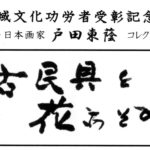 城文化功労者受彰記念
日本画家 戸田東蔭 コレク
古民具と
花あそび